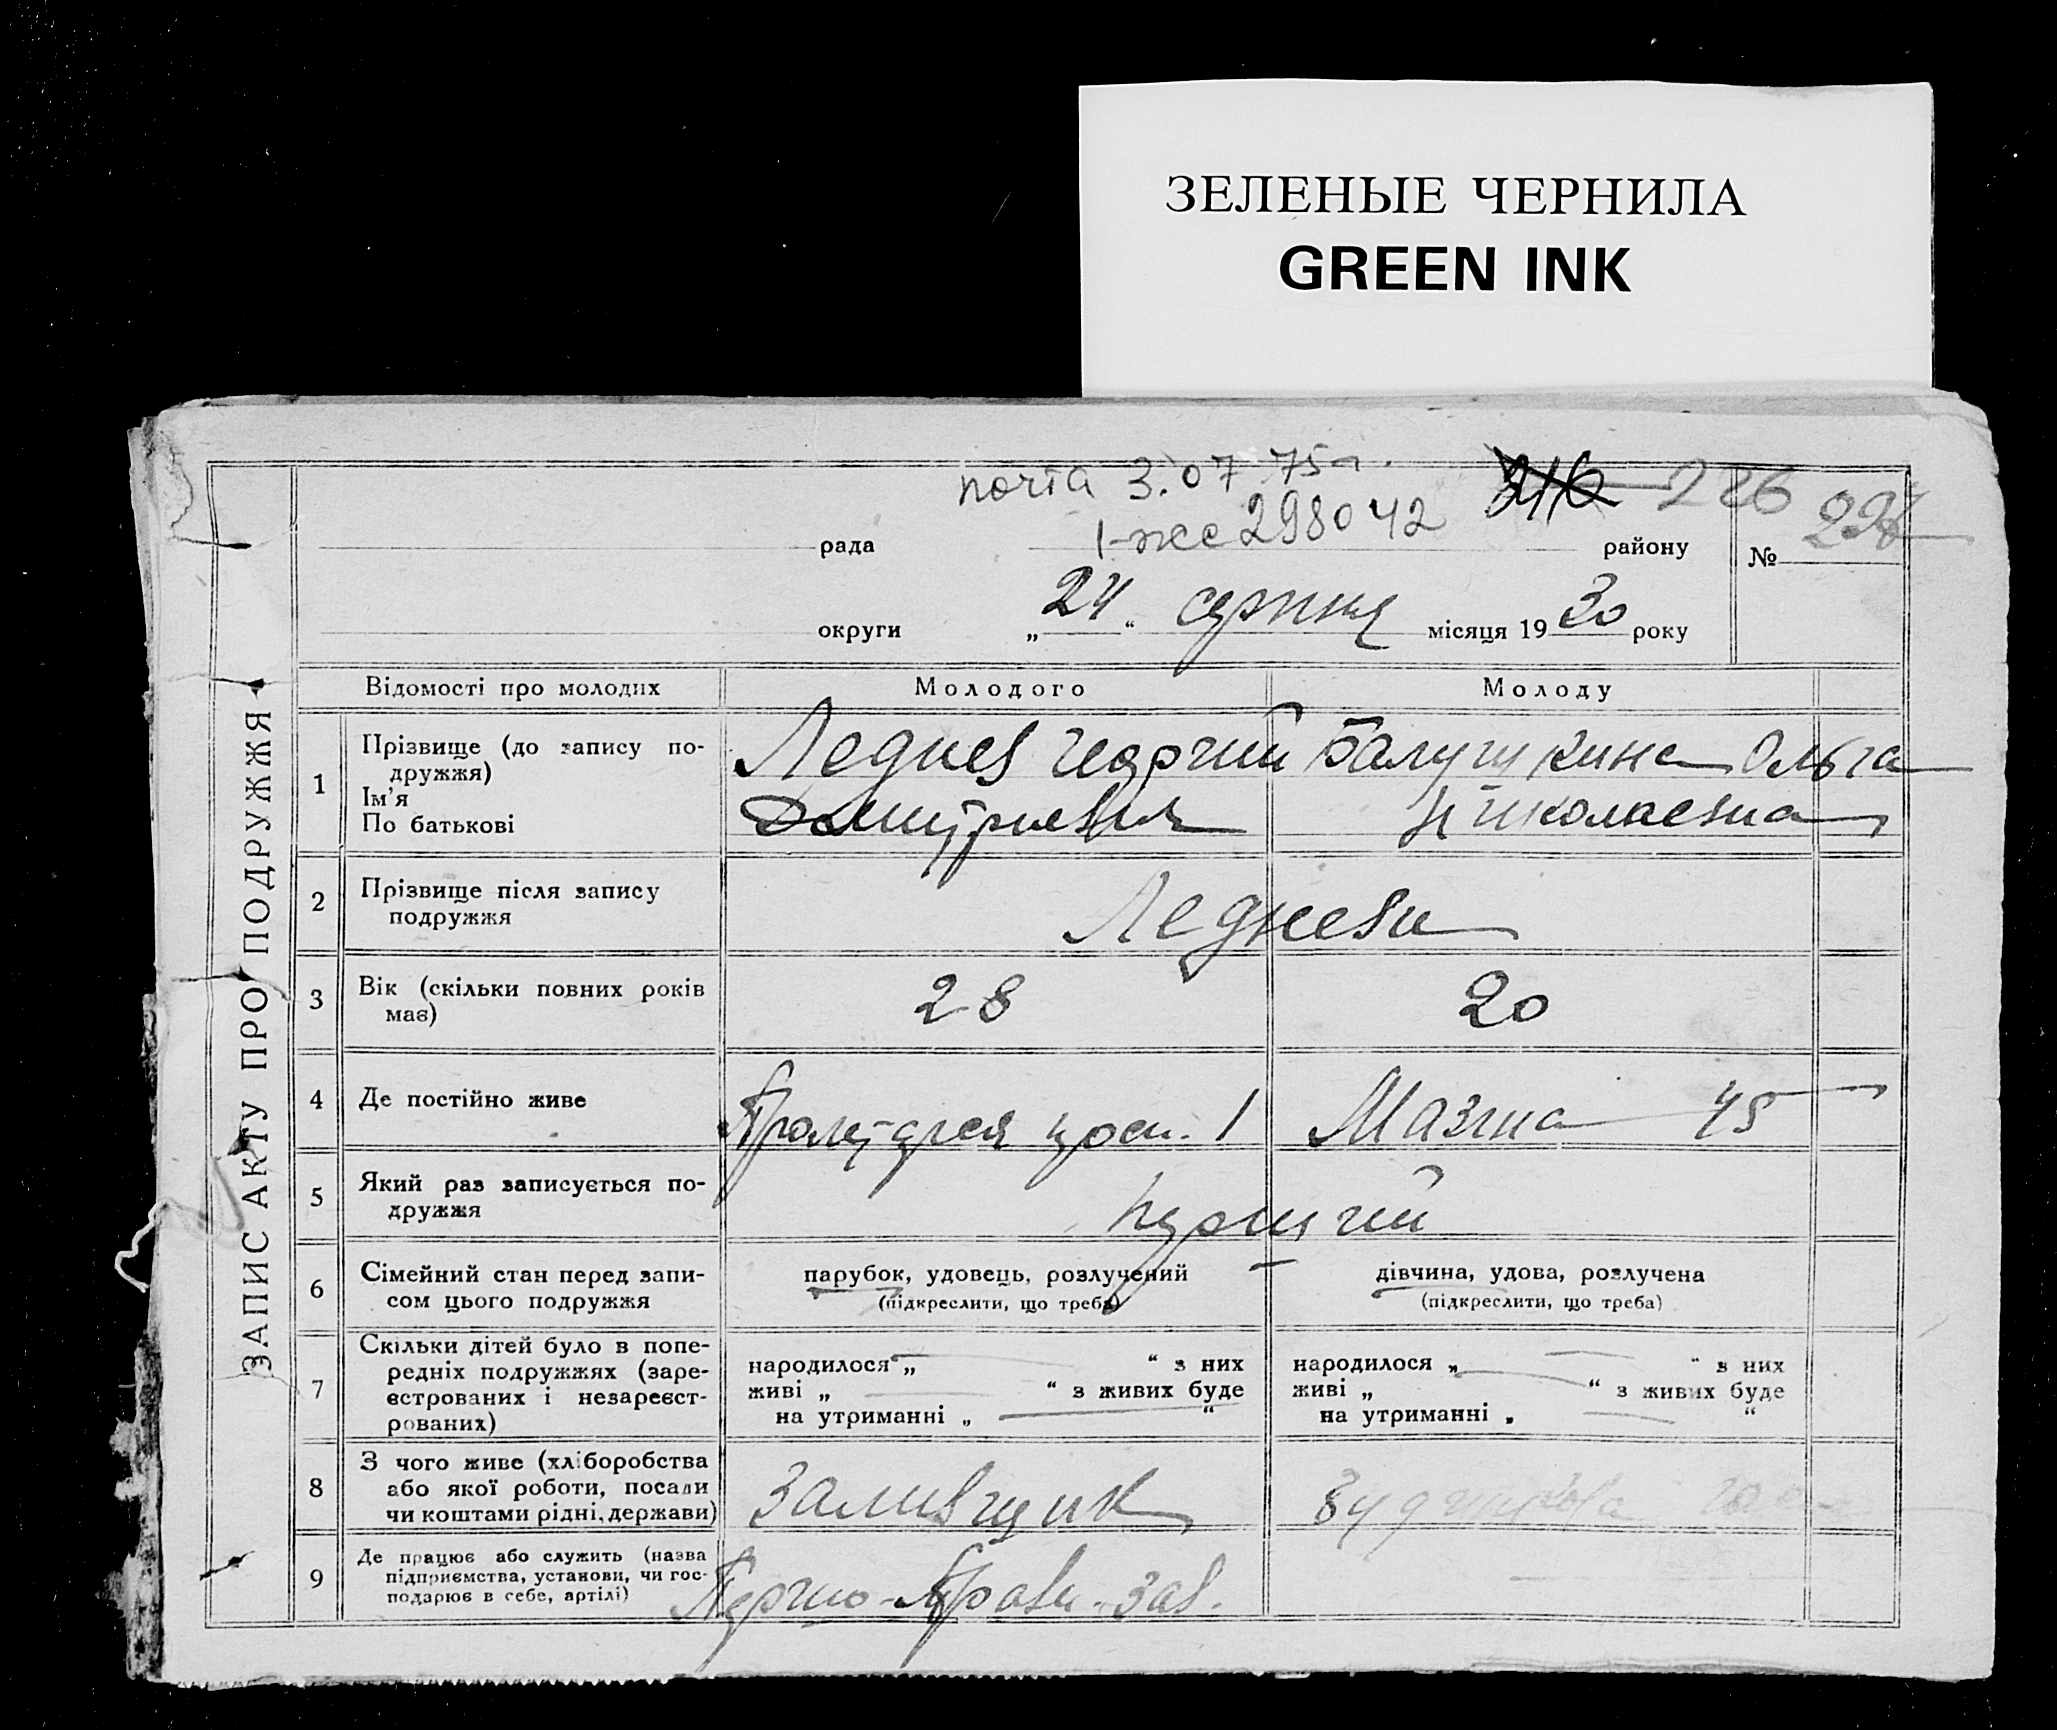 ЗЕЛЕНЫЕ ЧЕРНИЛА
GREEN INK
почта 3.07.75г. 316 226
1-жс 298042
рада району № 226
округи „24“ серпня місяця 1930 року
ЗАПИС АКТУ ПРО ПОДРУЖЖЯ
Відомості про молодих Молодого Молоду
1 Прізвище (до запису по-
дружжя)
Ім'я
По батькові
Леднев Георгий
Дмитриевич
Балушкина Ольга
Николаевна
2 Прізвище після запису
подружжя
Леднева
3 Вік (скільки повних років
має)
28 20
4 Де постійно живе
1
45
5 Який раз записується по-
дружжя
перший
6 Сімейний стан перед запи-
сом цього подружжя
парубок, удовець, розлучений
(підкреслити, що треба)
дівчина, удова, розлучена
(підкреслити, що треба)
7 Скільки дітей було в попе-
редніх подружжях (заре-
єстрованих і незареєст-
рованих)
народилося „ “ з них
живі „ “ з живих буде
на утриманні „ “
народилося „ “ з них
живі „ “ з живих буде
на утриманні „ “
8 З чого живе (хліборобства
або якої роботи, посади
чи коштами рідні, держави)
Заливщик
9 Де працює або служить (назва
підприємства, установи, чи гос-
подарює в себе, артілі)
зав.